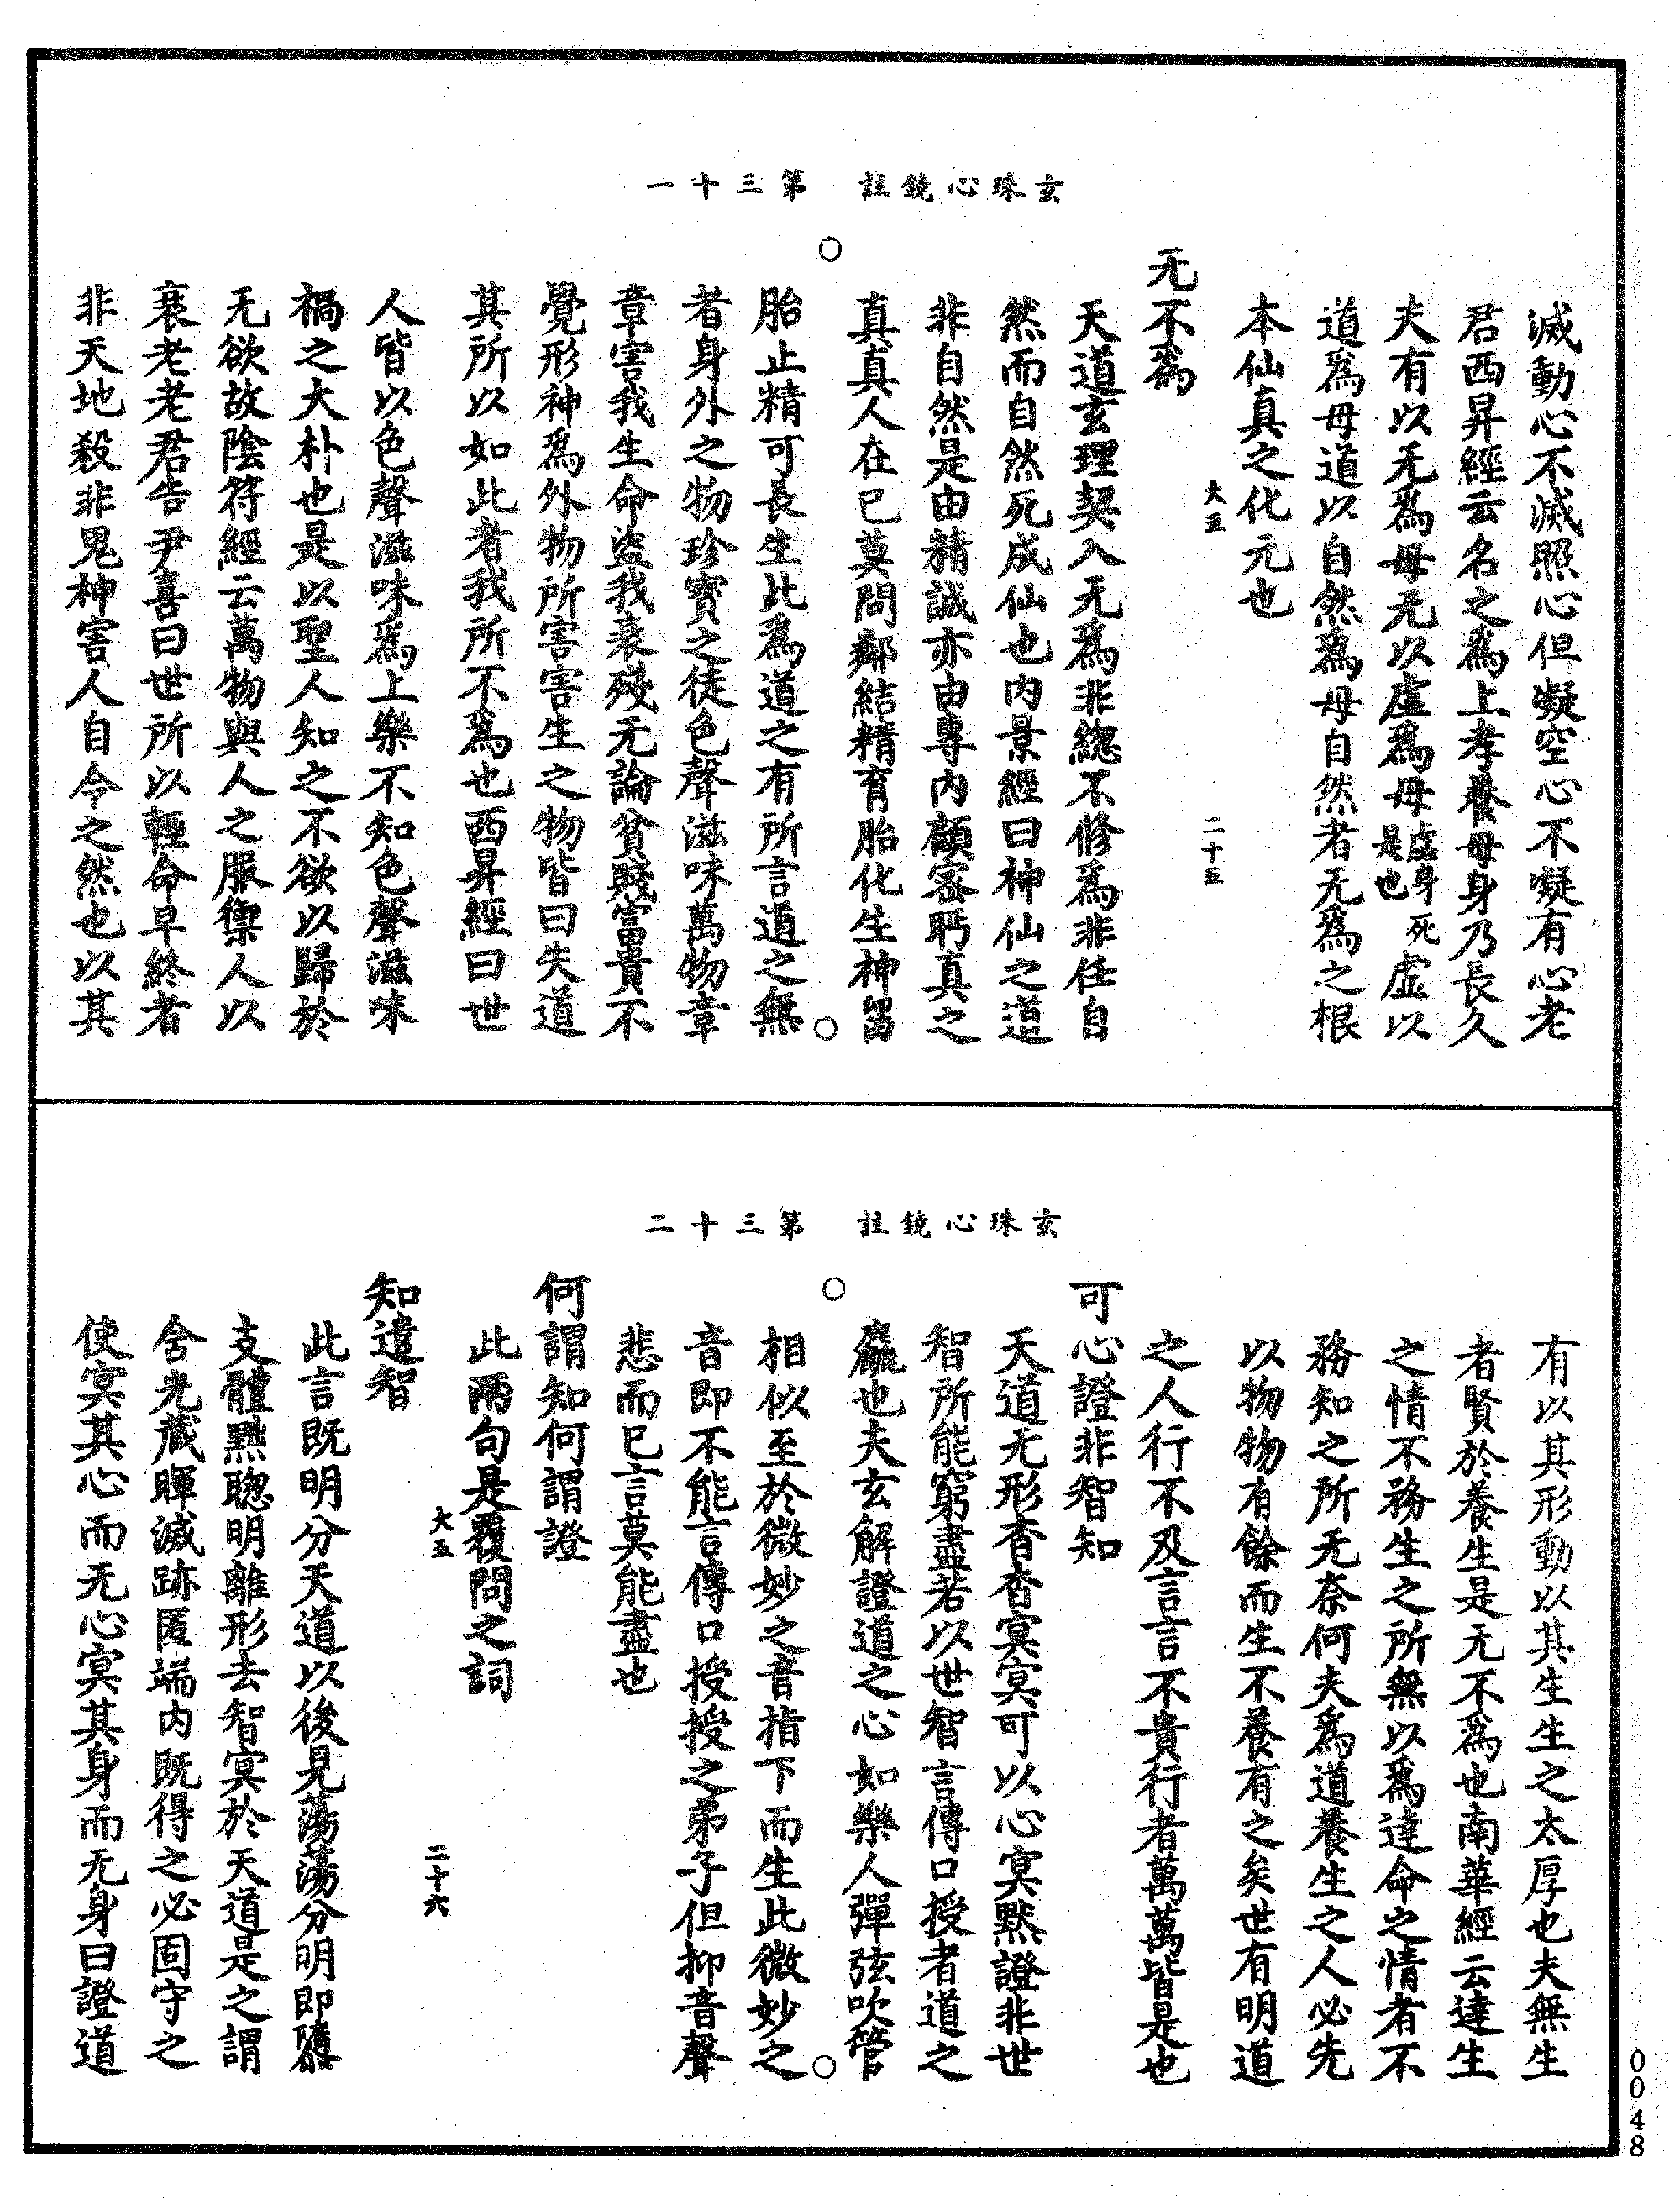 玄珠心鏡註　第三十一
滅動心不滅照心但凝空心不凝有心老
君西昇經云名之爲上孝養母身乃長久
夫有以无爲母无以虛爲母虛身死是也虛以
道爲母道以自然爲母自然者无爲之根
本仙真之化元也
大五　二十五
无不爲
天道玄理契入无爲非緫不修爲非任自
然而自然死成仙也内景經曰神仙之道
非自然是由精誠亦由專内顧密眄真之
真真人在已莫問鄰結精育胎化生神留
胎止精可長生此爲道之有所言道之無
者身外之物珍寶之徒色聲滋味萬物章
章害我生命盜我衰殘无論貧賤富貴不
覺形神爲外物所害害生之物皆曰失道
其所以如此者我所不爲也西昇經曰世
人皆以色聲滋味爲上樂不知色聲滋味
禍之大朴也是以聖人知之不欲以歸於
无欲故陰符經云萬物與人之服禦人以
衰老老君告尹喜曰世所以輕命早終者
非天地殺非鬼神害人自令之然也以其
玄珠心鏡註　第三十二
有以其形動以其生生之太厚也夫無生
者賢於養生是无不爲也南華經云達生
之情不務生之所無以爲達命之情者不
務知之所无奈何夫爲道養生之人必先
以物物有餘而生不養有之矣世有明道
之人行不及言言不貴行者萬萬皆是也
可心證非智知
天道无形杳杳冥冥可以心冥默證非世
智所能窮盡若以世智言傳口授者道之
麤也夫玄解證道之心如樂人彈弦吹管
相似至於微妙之音指下而生此微妙之
音即不能言傳口授授之弟子但抑音聲
悲而已言莫能盡也
何謂知何謂證
此兩句是覆問之詞
大五　二十六
知遣智
此言既明分天道以後見蕩蕩分明即隳
支體黜聰明離形去智冥於天道是之謂
含光藏暉滅跡匿端内既得之必固守之
使冥其心而无心冥其身而无身曰證道
0048